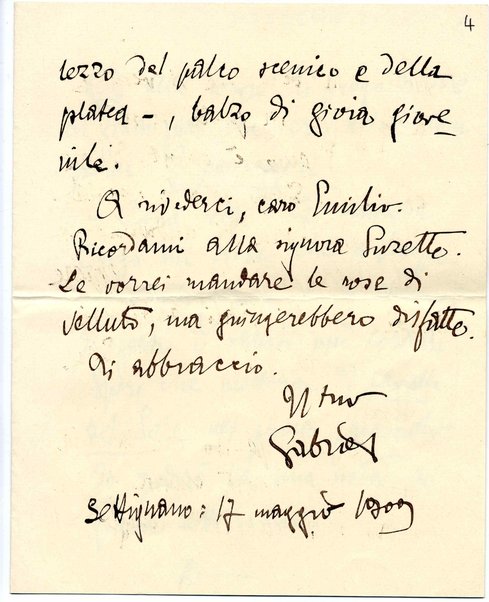 4
lezzo del palco scenico e della
platea –, balzo di gioia giove=
nile.
A rivederci, caro Emilio.
Ricordami alla signora Suzette.
Le vorrei mandare le rose di
velluto, ma giungerebbero disfatte.
Ti abbraccio.
Il tuo
Gabriel
Settignano: 17 maggio 1909